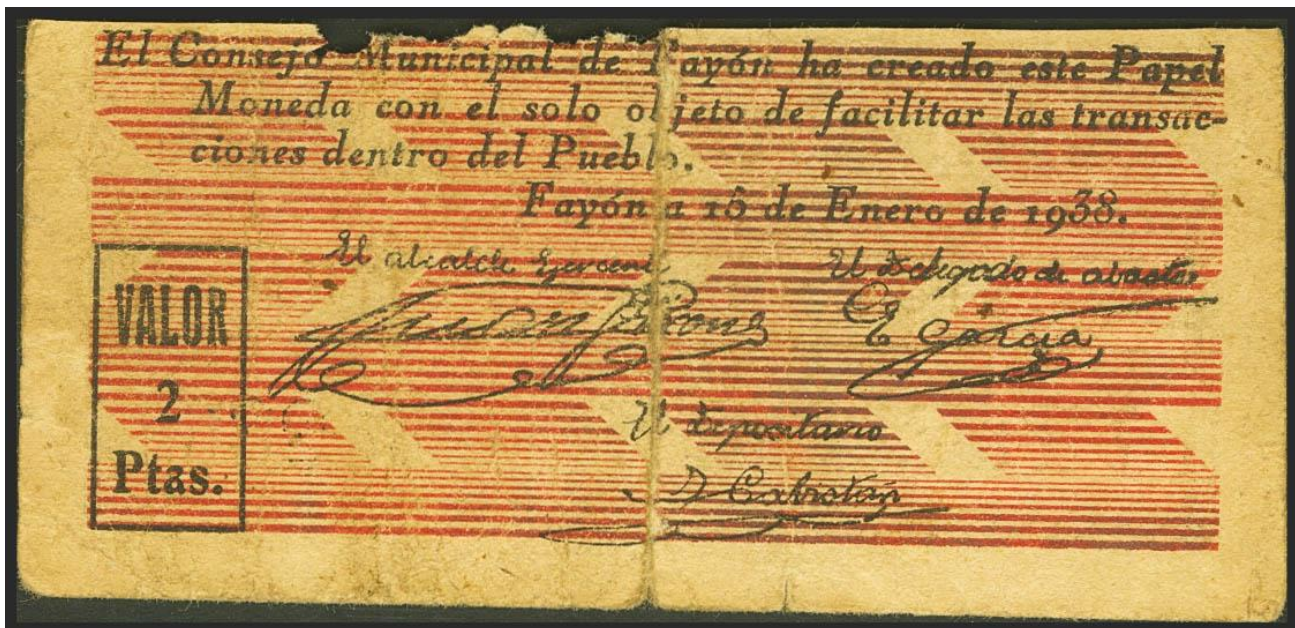 El Consejo Municipal de Fayón ha creado este Papel
Moneda con el solo objeto de facilitar las transac-
ciones dentro del Pueblo.
Fayón a 15 de Enero de 1938.
El alcalde Ejerciente
El Delegado de abastos
VALOR
2
Ptas.
García
El Depositario